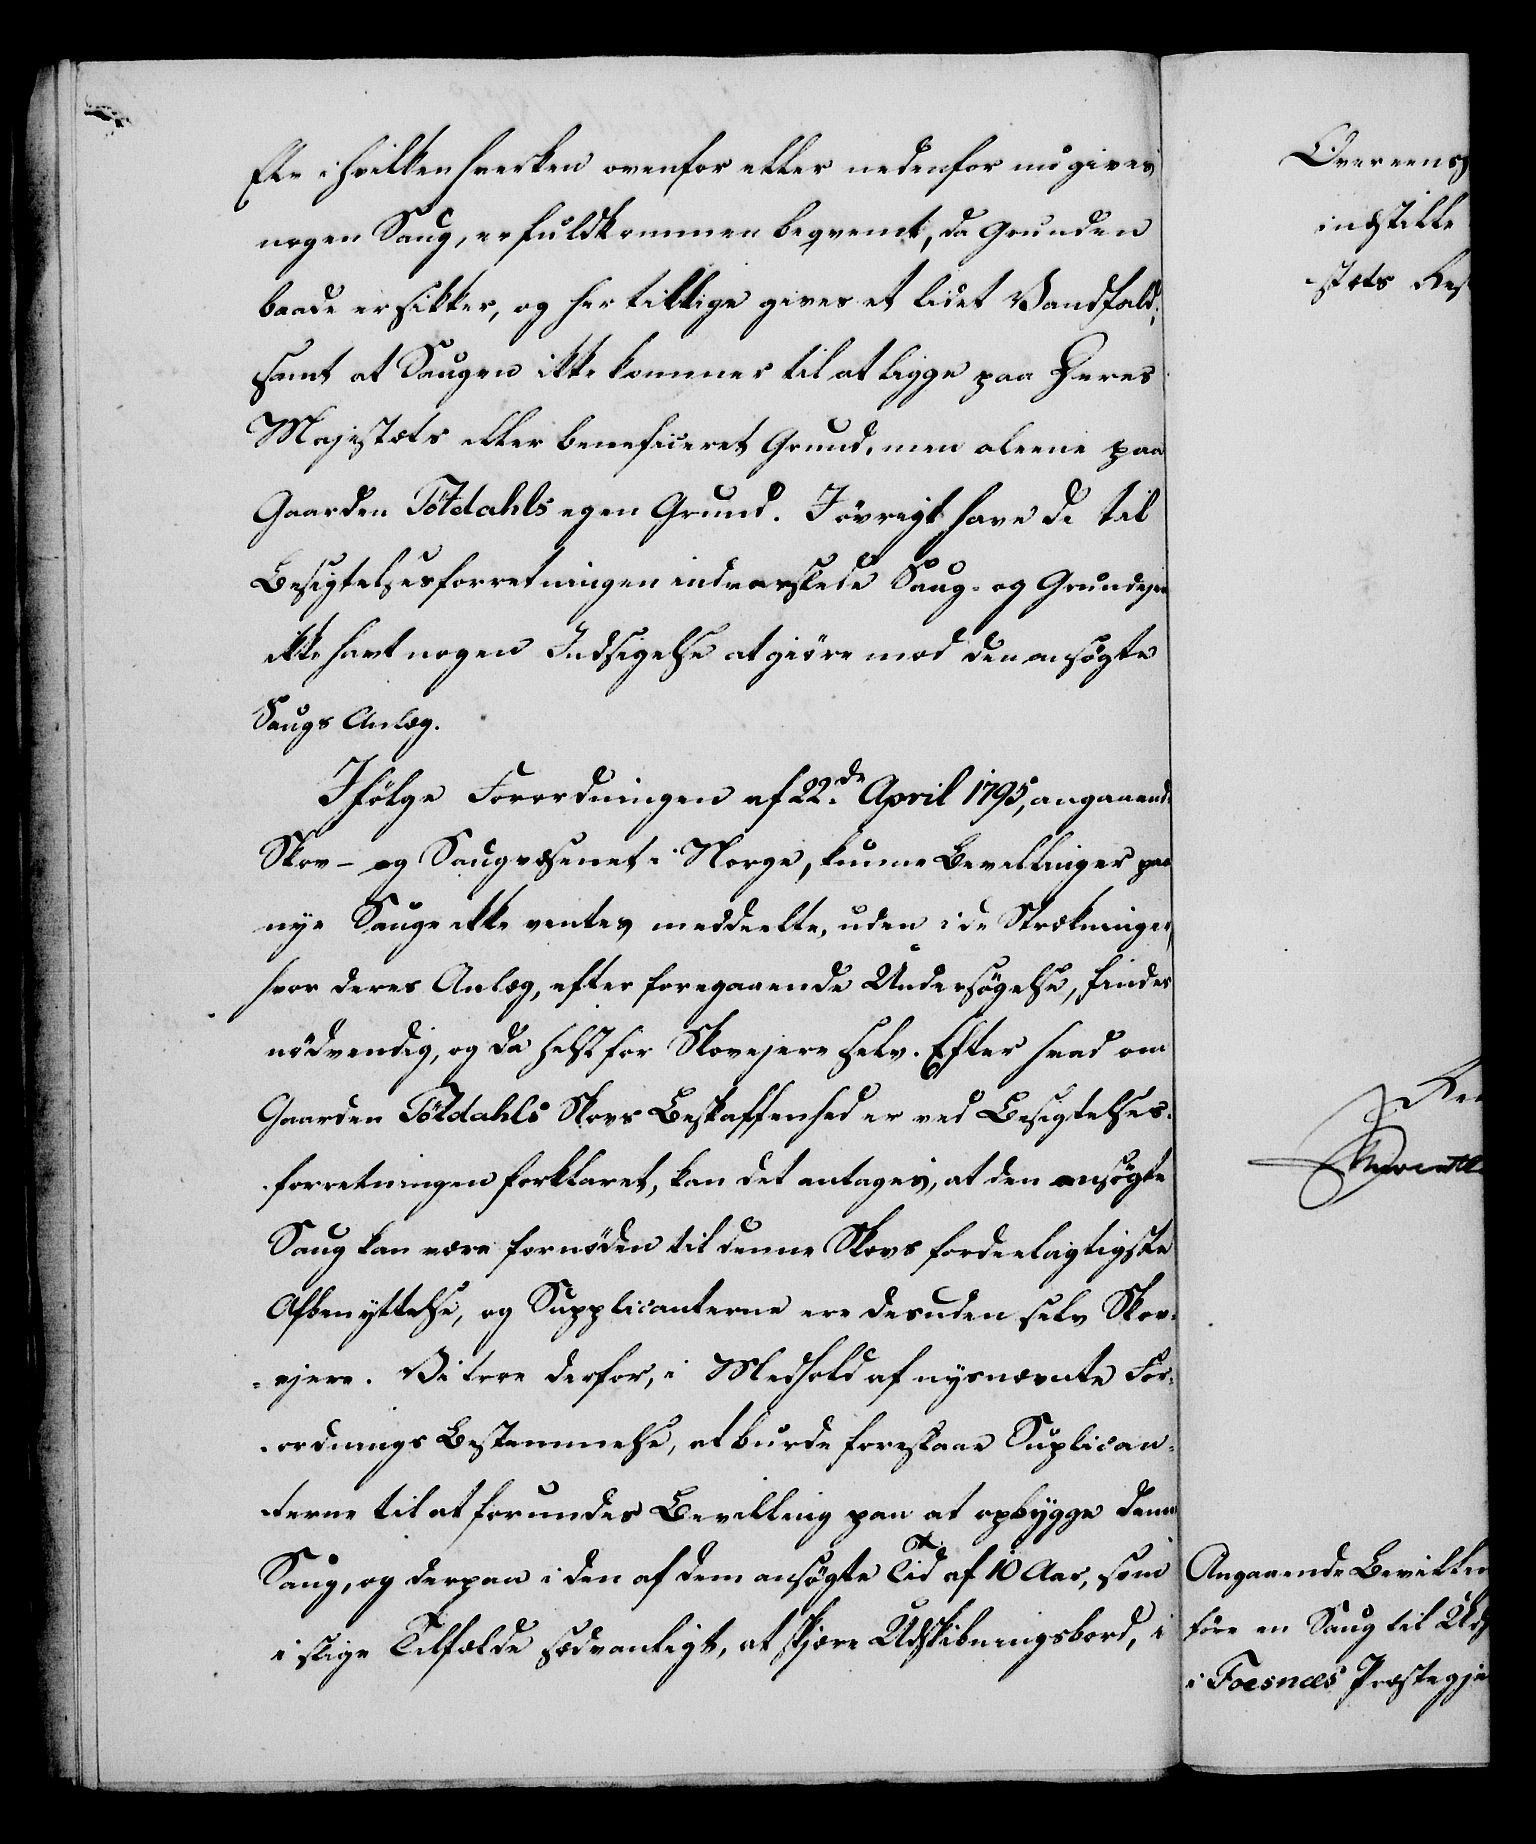 Elv i hvilken hverken ovenfor eller nedenfor nu gives
nogen Saug, er fuldkommen beqvemt, da Grunden
baade er sikker, og her tillige gives et lidet Vandfald,
samt at Saugen ikke kommer til at ligge paa Deres
Majestæts eller beneficeret Grund, men aleene paa
Gaarden Tötdahls egen Grund. I övrigt have de til
Besigtelsesforretningen indvarslede Saug- og Grundejere
ikke havt nogen Indsigelse at giöre mod den ansögte
Saugs Anlæg.
Ifölge Forordningen af 22.de April 1795, angaaende
Skov- og Saugvæsenet i Norge, kunne Bevillinger paa
nye Sauge ikke ventes meddeelte, uden i de Strækninger,
hvor deres Anlæg, efter foregaaende Undersögelse, findes
nödvendig, og da helst for Skovejere selv. Efter hvad om
Gaarden Tötdahls Skovs Beskaffenhed er ved Besigtelses-
forretningen forklaret, kan det antages, at den ansögte
Saug kan være fornöden til denne Skovs fordeelagtigste
Afbenyttelse, og Supplicanterne ere desuden selv Skov-
-ejere. Vi troe derfor, i Medhold af nysnævnte For-
-ordnings Bestemmelse, at burde foreslaae Suplican-
-terne til at forundes Bevilling paa at opbygge denne
Saug, og derpaa i den af dem ansögte Tid af 10 Aar, som
i slige Tilfælde sædvanligt, at skjære Udskibningsbord, i
Overeens
indstille
-stæts Res
Angaaende Bevillin
före en Saug til Uds
i Foesnæs Præstegje